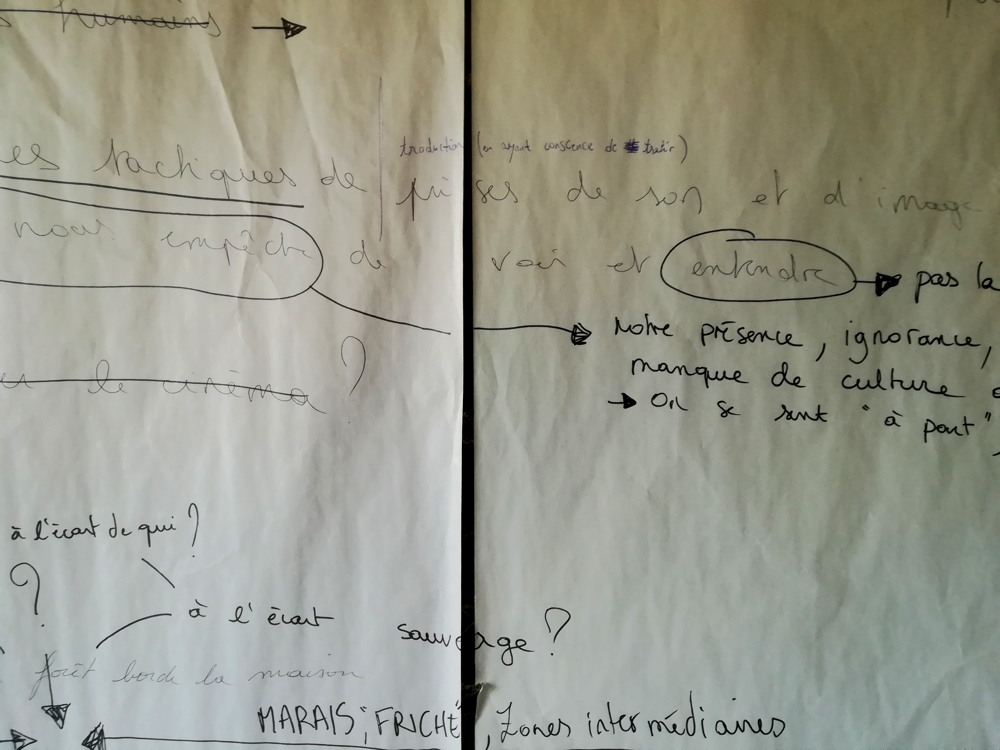 s humains →
traduction (en ayant conscience de trahir)
es tactiques de prises de son et d'image
nous empêche de voir et entendre → pas la
Notre présence, ignorance,
le cinéma ?
manque de culture
→ On se sent "à part"
à l'écart de qui ?
?
à l'écart
sauvage ?
forêt borde la maison
MARAIS, "FRICHE", Zones intermédiaires